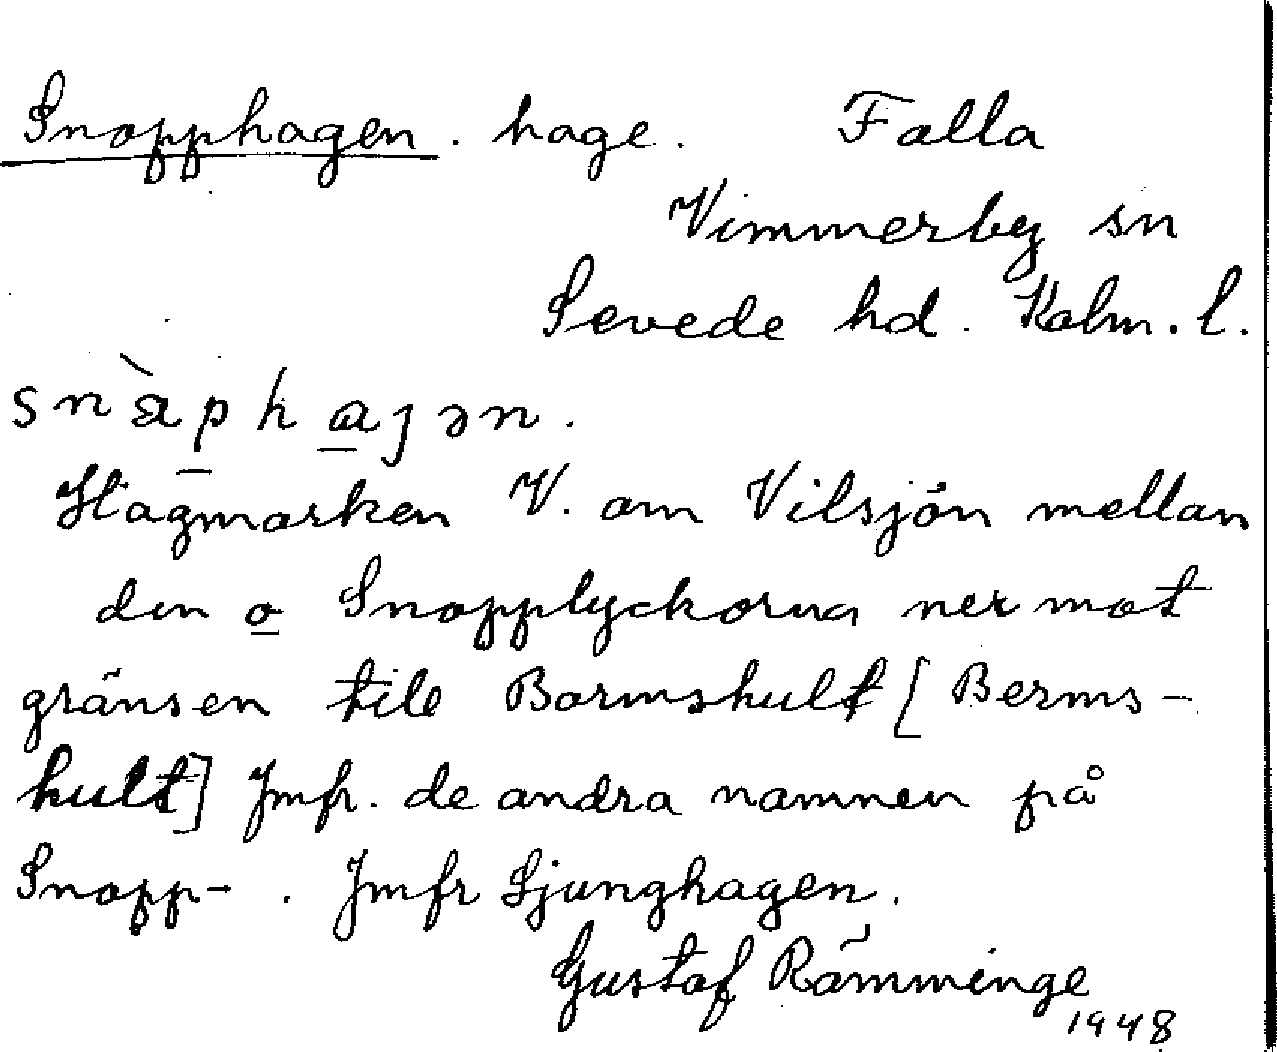 Snopphagen. hage. Falla
Vimmerby sn
Sevede hd. Kalm. l.
snàphajən.
Hagmarken V. om Vilsjön mellan
den o Snopplyckorna ner mot
gränsen till Bormshult [Berms-
hult] Jmfr. de andra namnen på
Snopp- . Jmfr Ljunghagen.
Gustaf Rämminge
1948